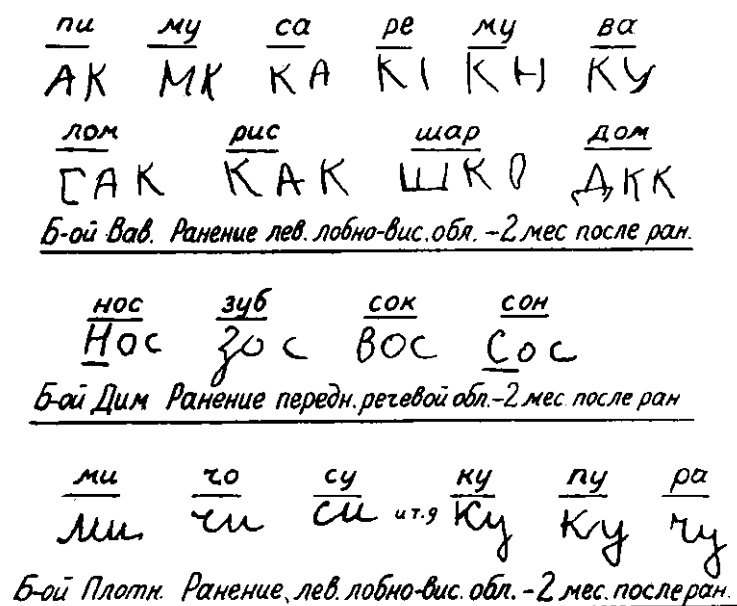 пи му са ре му ва
АК МК КА КІ КН КУ
лом рис шар дом
САК КАК ШКО ДКК
Б-ой Вав. Ранение лев. лобно-вис. обл. – 2 мес после ран.
нос зуб сок сон
Нос Зос вос Сос
Б-ой Дим Ранение передн. речевой обл. – 2 мес. после ран
ми чо су ку пу ра
ми. чи си и т. д Ку Ку чу
Б-ой Плотн. Ранение лев. лобно-вис. обл. – 2 мес. после ран.